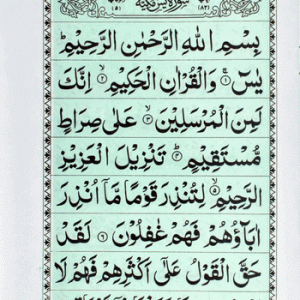 سورة يس مكية
بِسْمِ اللهِ الرَّحْمٰنِ الرَّحِيْمِ
يٰسٓ ۚ ۝١ وَالْقُرْاٰنِ الْحَكِيْمِ ۙ ۝٢ اِنَّكَ
لَمِنَ الْمُرْسَلِيْنَ ۙ ۝٣ عَلٰى صِرَاطٍ
مُّسْتَقِيْمٍ ؕ ۝٤ تَنْزِيْلَ الْعَزِيْزِ
الرَّحِيْمِ ۙ ۝٥ لِتُنْذِرَ قَوْمًا مَّاۤ اُنْذِرَ
اٰبَآؤُهُمْ فَهُمْ غٰفِلُوْنَ ۝٦ لَقَدْ
حَقَّ الْقَوْلُ عَلٰۤى اَكْثَرِهِمْ فَهُمْ لَا